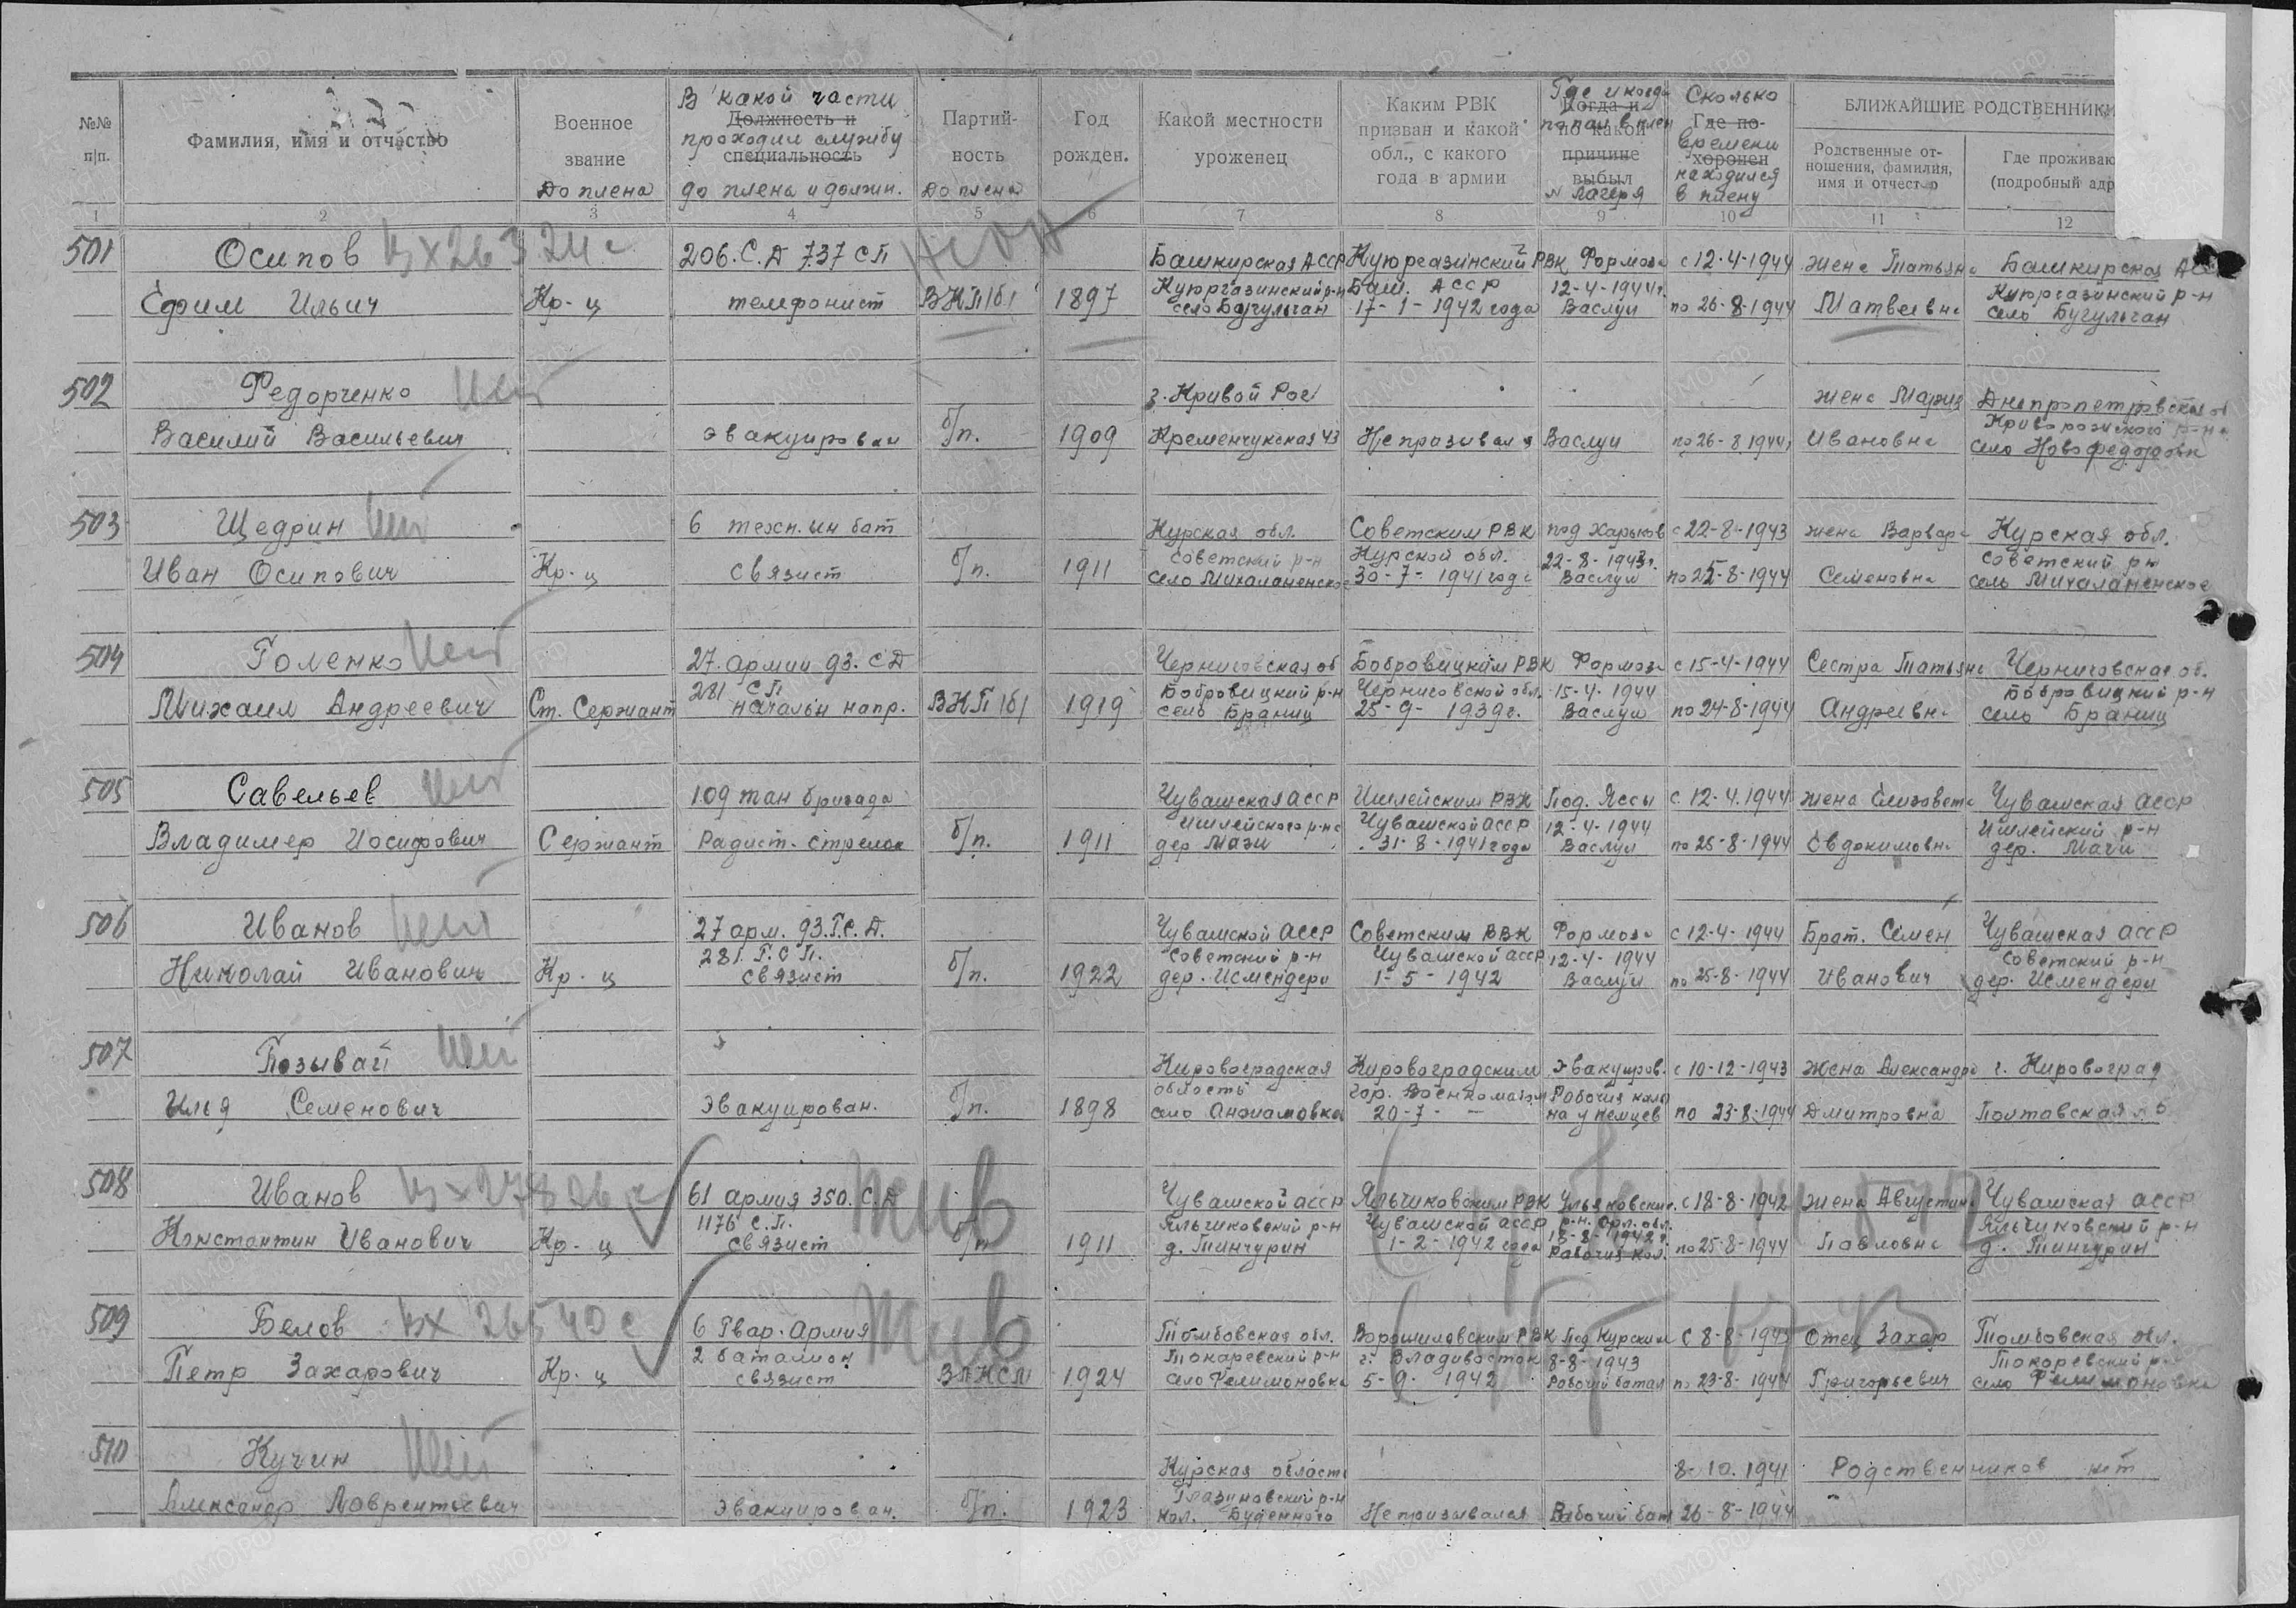 №№ п/п.
Фамилия, имя и отчество
Военное звание
До плена
В какой части
Должность и
проходил службу
специальность
до плена и должн.
Партийность
До плена
Год рожден.
Какой местности уроженец
Каким РВК призван и какой обл., с какого года в армии
Где и когда
Когда и
попал в плен
по какой
причине
выбыл
№ лагеря
Сколько
Где по-
времени
хоронен
находился
в плену
БЛИЖАЙШИЕ РОДСТВЕННИКИ
Родственные отношения, фамилия, имя и отчество
Где проживаю
(подробный адр
1 2 3 4 5 6 7 8 9 10 11 12
501
Осипов
Ефим Ильич
Кр-ц
206. С.Д 737 СП
телефонист
ВКП/б/
1897
Башкирская АССР
Куюргазинский р-н
село
Куюргазинский РВК
Баш. АССР
17-1-1942 года
12-4-1944г.
Васлуи
с 12-4-1944
по 26-8-1944
жена Татьяна
Матвеевна
Башкирская
Куюргазинский р-н
село Бугульчан
502
Федорченко
Василий Васильевич
эвакуирован
б/п.
1909
г. Кривой Рог
Кременчукская 43
Не призывался
Васлуи
по 26-8-1944
жена Мария
Ивановна
Днепропетровская об
село
503
Щедрин
Иван Осипович
Кр-ц
связист
б/п.
1911
Курская обл.
Советский р-н
село Михаланенское
Советским РВК
Курской обл.
30-7-1941 года
под Харьков
22-8-1943г.
Васлуи
с 22-8-1943
по 25-8-1944
жена Варвара
Семеновна
Курская обл.
Советский р-н
село Михаланенское
504
Голенко
Михаил Андреевич
Ст. Сержант
27. армии 93. СД
281 СП
начальн напр.
ВКП/б/
1919
Черниговская об
Бобровицкий р-н
село Браниц
Бобровицким РВК
Черниговской обл.
25-9-1939г.
15-4-1944
Васлуи
с 15-4-1944
по 24-8-1944
Сестра Татьяна
Андреевн.
Черниговская об.
Бобровицкий р-н
село Браниц
505
Савельев
Владимер Иосифович
Сержант
109 тан бригада
Радист-стрелок
б/п.
1911
Чувашская АССР
Ишлейского р-на
дер
Ишлейским РВК
Чувашской АССР
31-8-1941 года
Под. Яссы
12-4-1944
Васлуи
с. 12-4.1944
по 25-8-1944
жена Елизовета
Евдокимовн.
Чувашская АССР
Ишлейский р-н
дер.
506
Иванов
Николай Иванович
Кр-ц
27 арм. 93.Г.С.Д.
281. Г.С П.
связист
б/п.
1922
Чувашской АССР
Советский р-н
дер. Исмендери
Советским РВК
Чувашской АССР
1-5-1942
12-4-1944
Васлуи
с 12-4-1944
по 25-8-1944
Брат. Семен
Иванович
Чувашская АССР
Советский р-н
дер. Исмендери
507
Позывай
Илья Семенович
эвакуирован.
б/п.
1898
Кировоградская
область
село
Кировоградским
гор. Военкоматом
20-7- —
эвакуиров.
Рабочая коло
на у немцев
с 10-12-1943
по 23-8-1944
жена Александра
Дмитровна
г. Кировоград
Полтавская
508
Иванов
Константин Иванович
Кр-ц
61 армия 350. С.Д
1176 С.П.
связист
жив
б/п
1911
Чувашской АССР
Яльчиковский р-н
д. Тинчурин
Яльчиковским РВК
Чувашской АССР
1-2-1942 года
Ульяновский
р-н. Орл. обл.
18-8-1942г.
Рабочая кол.
с 18-8-1942
по 25-8-1944
жена Августина
Павловна
Чувашская АССР
Яльчиковский р-н
д. Тинчурин
509
Белов
Петр Захарович
Кр-ц
6 Гвар. Армия
2 баталион
связист
жив
ВЛКСМ
1924
Томбовская обл.
Токаревский р-н
село Фелимоновка
Ворошиловским РВК
г. Владивосток
5-9-1942
Под Курским
8-8-1943
Рабочий батал
с 8-8-1943
по 23-8-1944
Отец Захар
Григорьевич
Томбовская обл.
Токоревский р-н
село Фелимоновка
510
Кучин
Александр Лаврентьевич
эвакуирован.
б/п.
1923
Курская область
кол. Буденного
Не призывался
Рабочий бат
8-10.1941
26-8-1944
Родственников нет